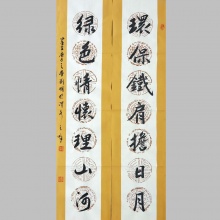 環保鐵肩擔日月
綠色情懷理山河